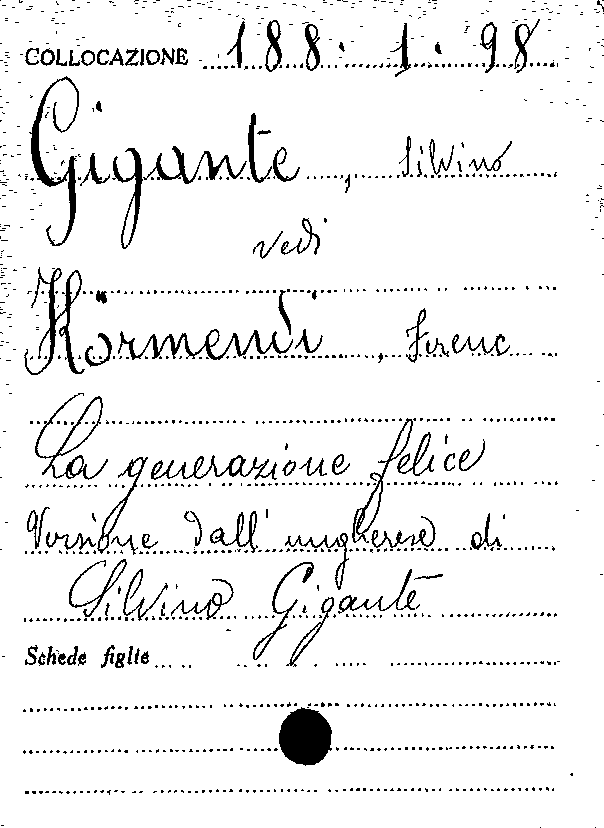 COLLOCAZIONE 188. 1. 98
Gigante, Silvino
vedi
Körmendi, Ferenc
La generazione felice
Versione dall'ungherese di
Silvino Gigante
Schede figlie